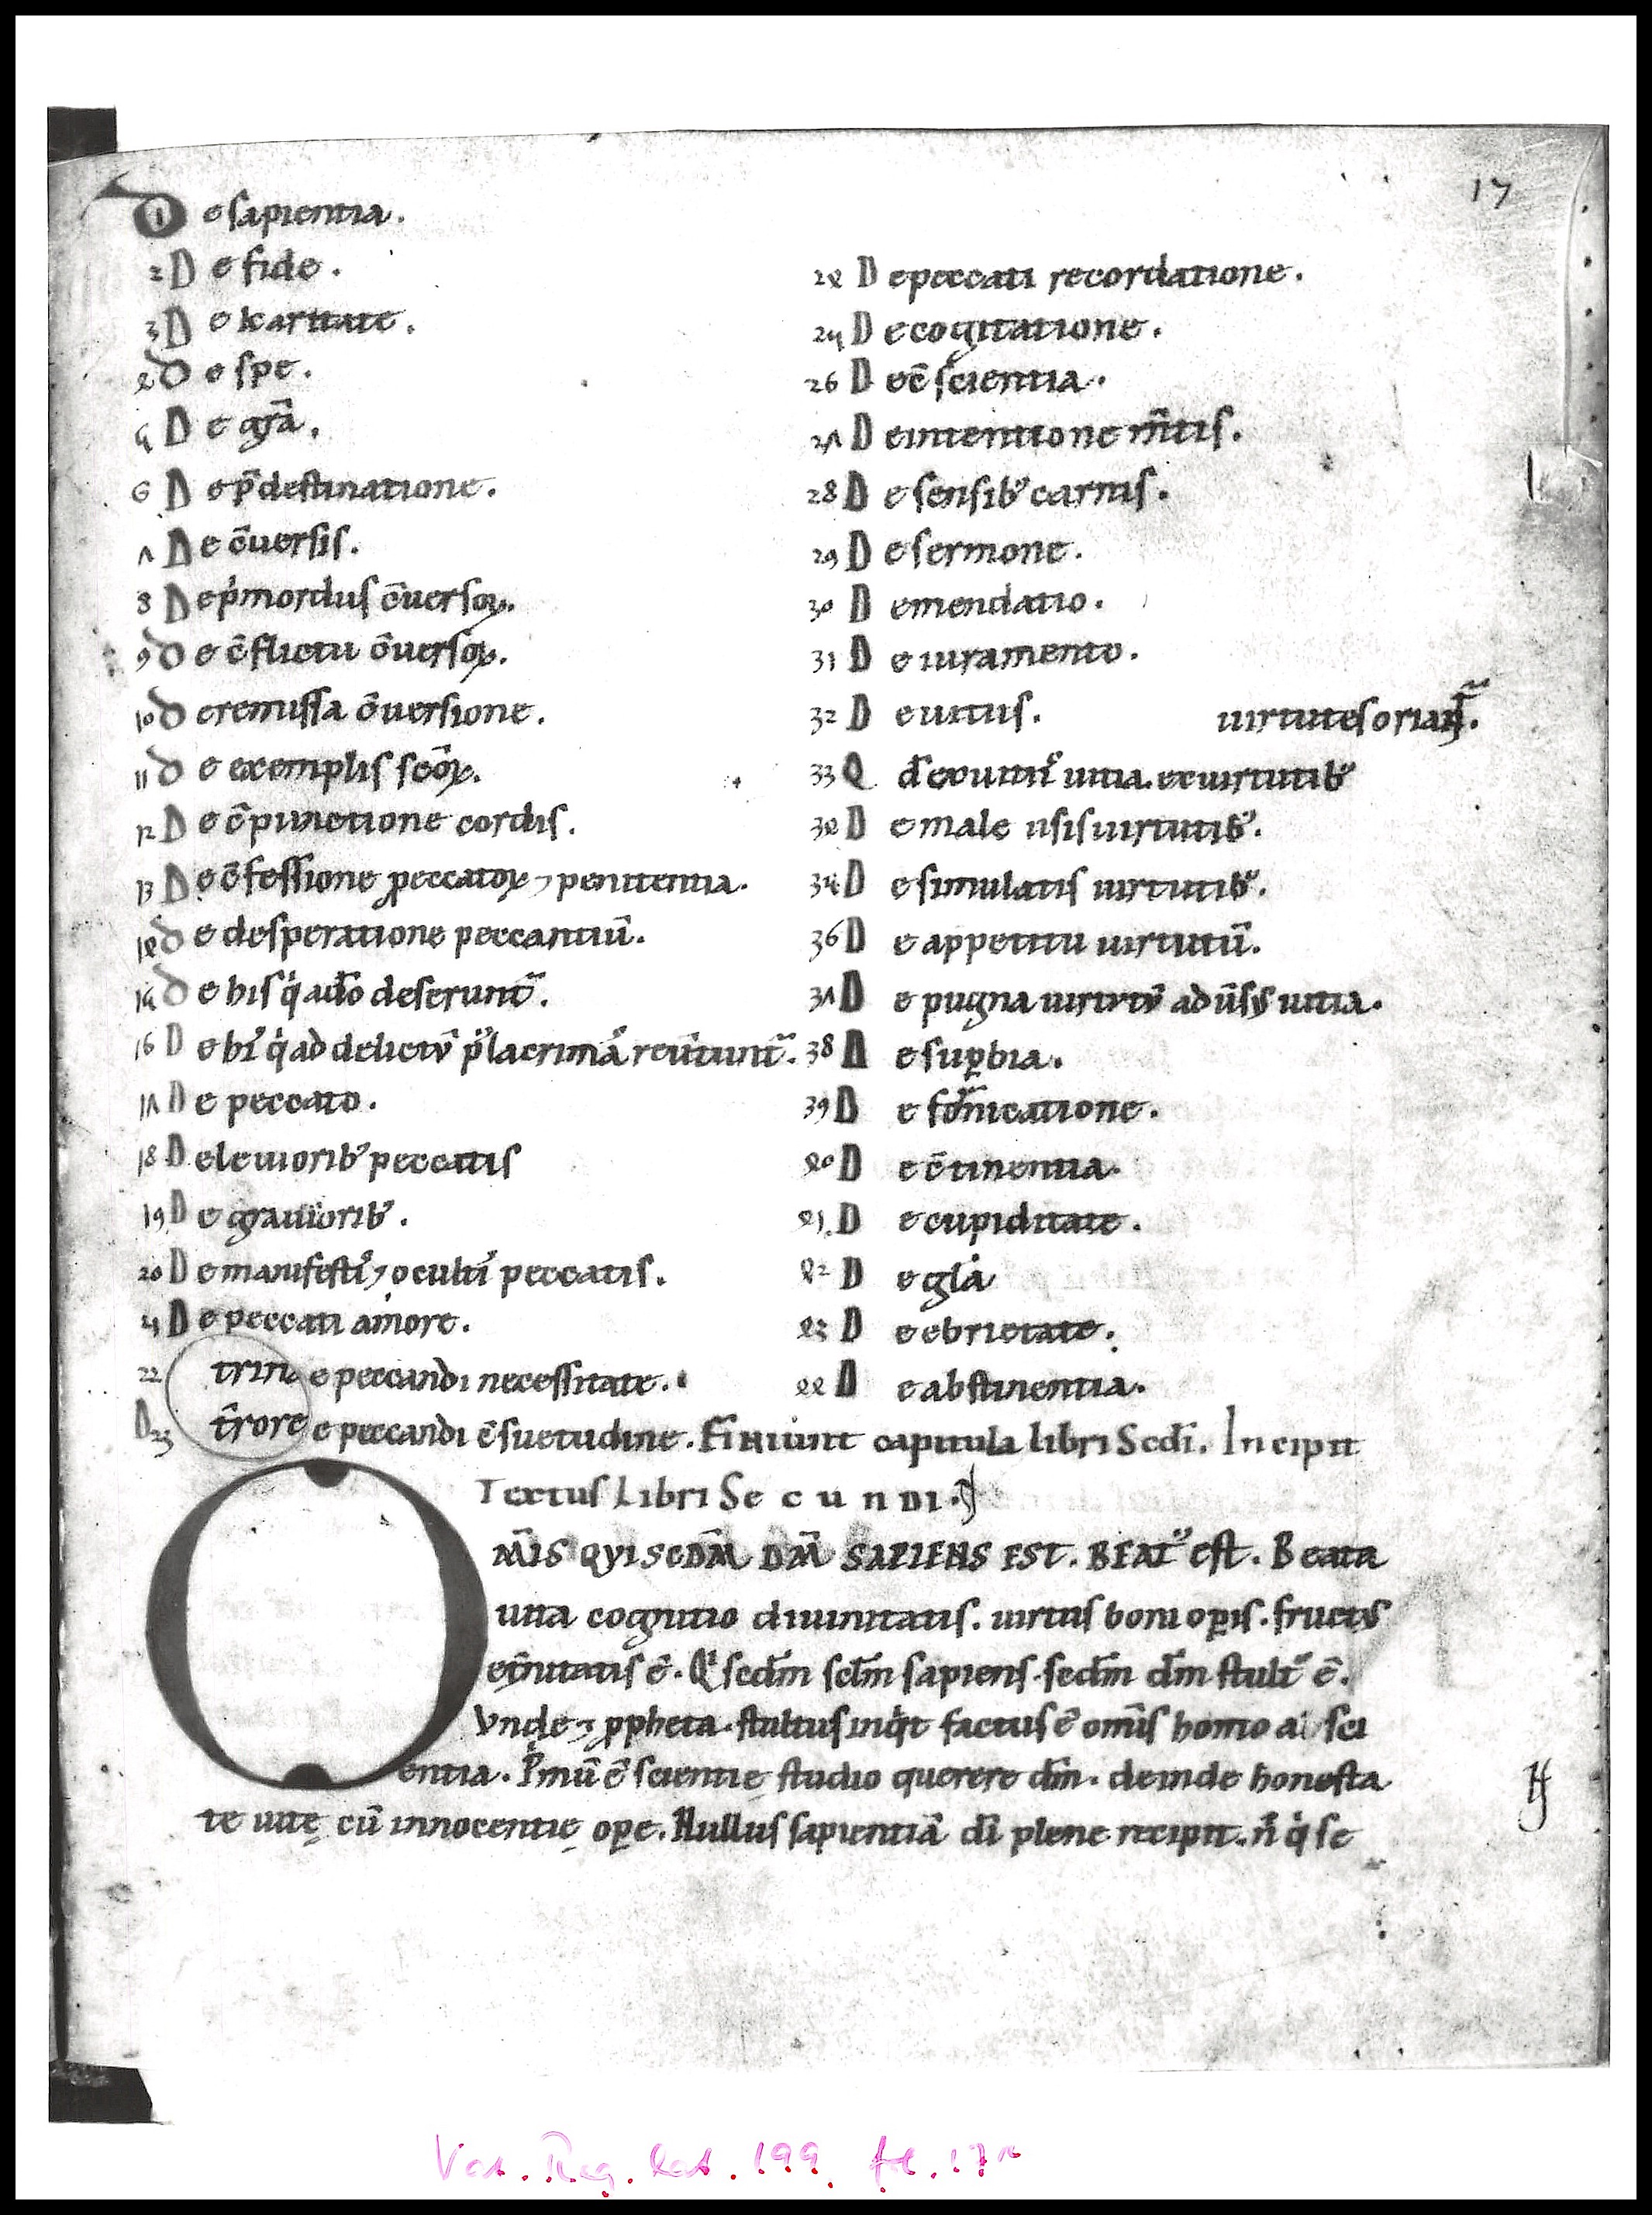 17
1 De sapientia.
2 De fide.
3 De karitate.
4 De spe.
5 De gr̃a.
6 De p̃destinatione.
7 De c̃uersis.
8 De pͥmordiis c̃uersoꝝ.
9 De c̃flictu c̃uersoꝝ.
10 De remissa c̃uersione.
11 De exemplis sc̃oꝝ.
12 De c̃punctione cordis.
13 De c̃fessione peccatoꝝ ⁊ penitentia.
14 De desperatione peccantiũ.
15 De his qͥ a dõ deserunt᷑.
16 De hiˢ qͥ ad delictũ pꝰ lacrimã reũtunt᷑.
17 De peccato.
18 De leuioribꝰ peccatis
19 De grauioribꝰ.
20 De manifestiˢ ⁊ ocultiˢ peccatis.
21 De peccati amore.
22 De peccandi necessitate.
trin
D 23 e peccandi c̃suetudine. Finiunt capitula libri Scdi. Incipit
t̃rore
24 De peccati recordatione.
25 De cogitatione.
26 De c̃scientia.
27 De intentione m̃tis.
28 De sensibꝰ carnis.
29 De sermone.
30 D emendatio.
31 De iuramento.
32 De uitiis.
uirtutes oriant᷑.
33 Qd̃ ex uitiiˢ uitia. ex uirtutibꝰ
34 De male usis uirtutibꝰ.
35 De simulatis uirtutibꝰ.
36 De appetitu uirtutũ.
37 De pugna uirtutũ aduũsꝰ uitia.
38 De suꝑbia.
39 De fornicatione.
40 De c̃tinentia.
41 De cupiditate.
42 De gl̃a
43 De ebrietate.
44 De abstinentia.
Textus Libri Secundi.
OM̃IS QVI SCDM̃ DM̃ SAPIENS EST. BEATꝰ est. Beata
uita cognitio diuinitatis. uirtus boni oꝑis. fructꝰ
et̃nitatis ẽ. Qͥ scdm̃ sclm̃ sapiens. scdm̃ dm̃ stultꝰ ẽ.
Vnde ⁊ ꝓpheta. stultus inqͥt factus ẽ om̃is homo a sci
entia. Pͥmũ ẽ scientię studio querere dm̃. deinde honesta
te uitę cũ innocentię oꝑe. Nullus sapientiã di᷑ plene recipit. ñ qͥ se
Vat. Reg. lat. 199. fol. 17r